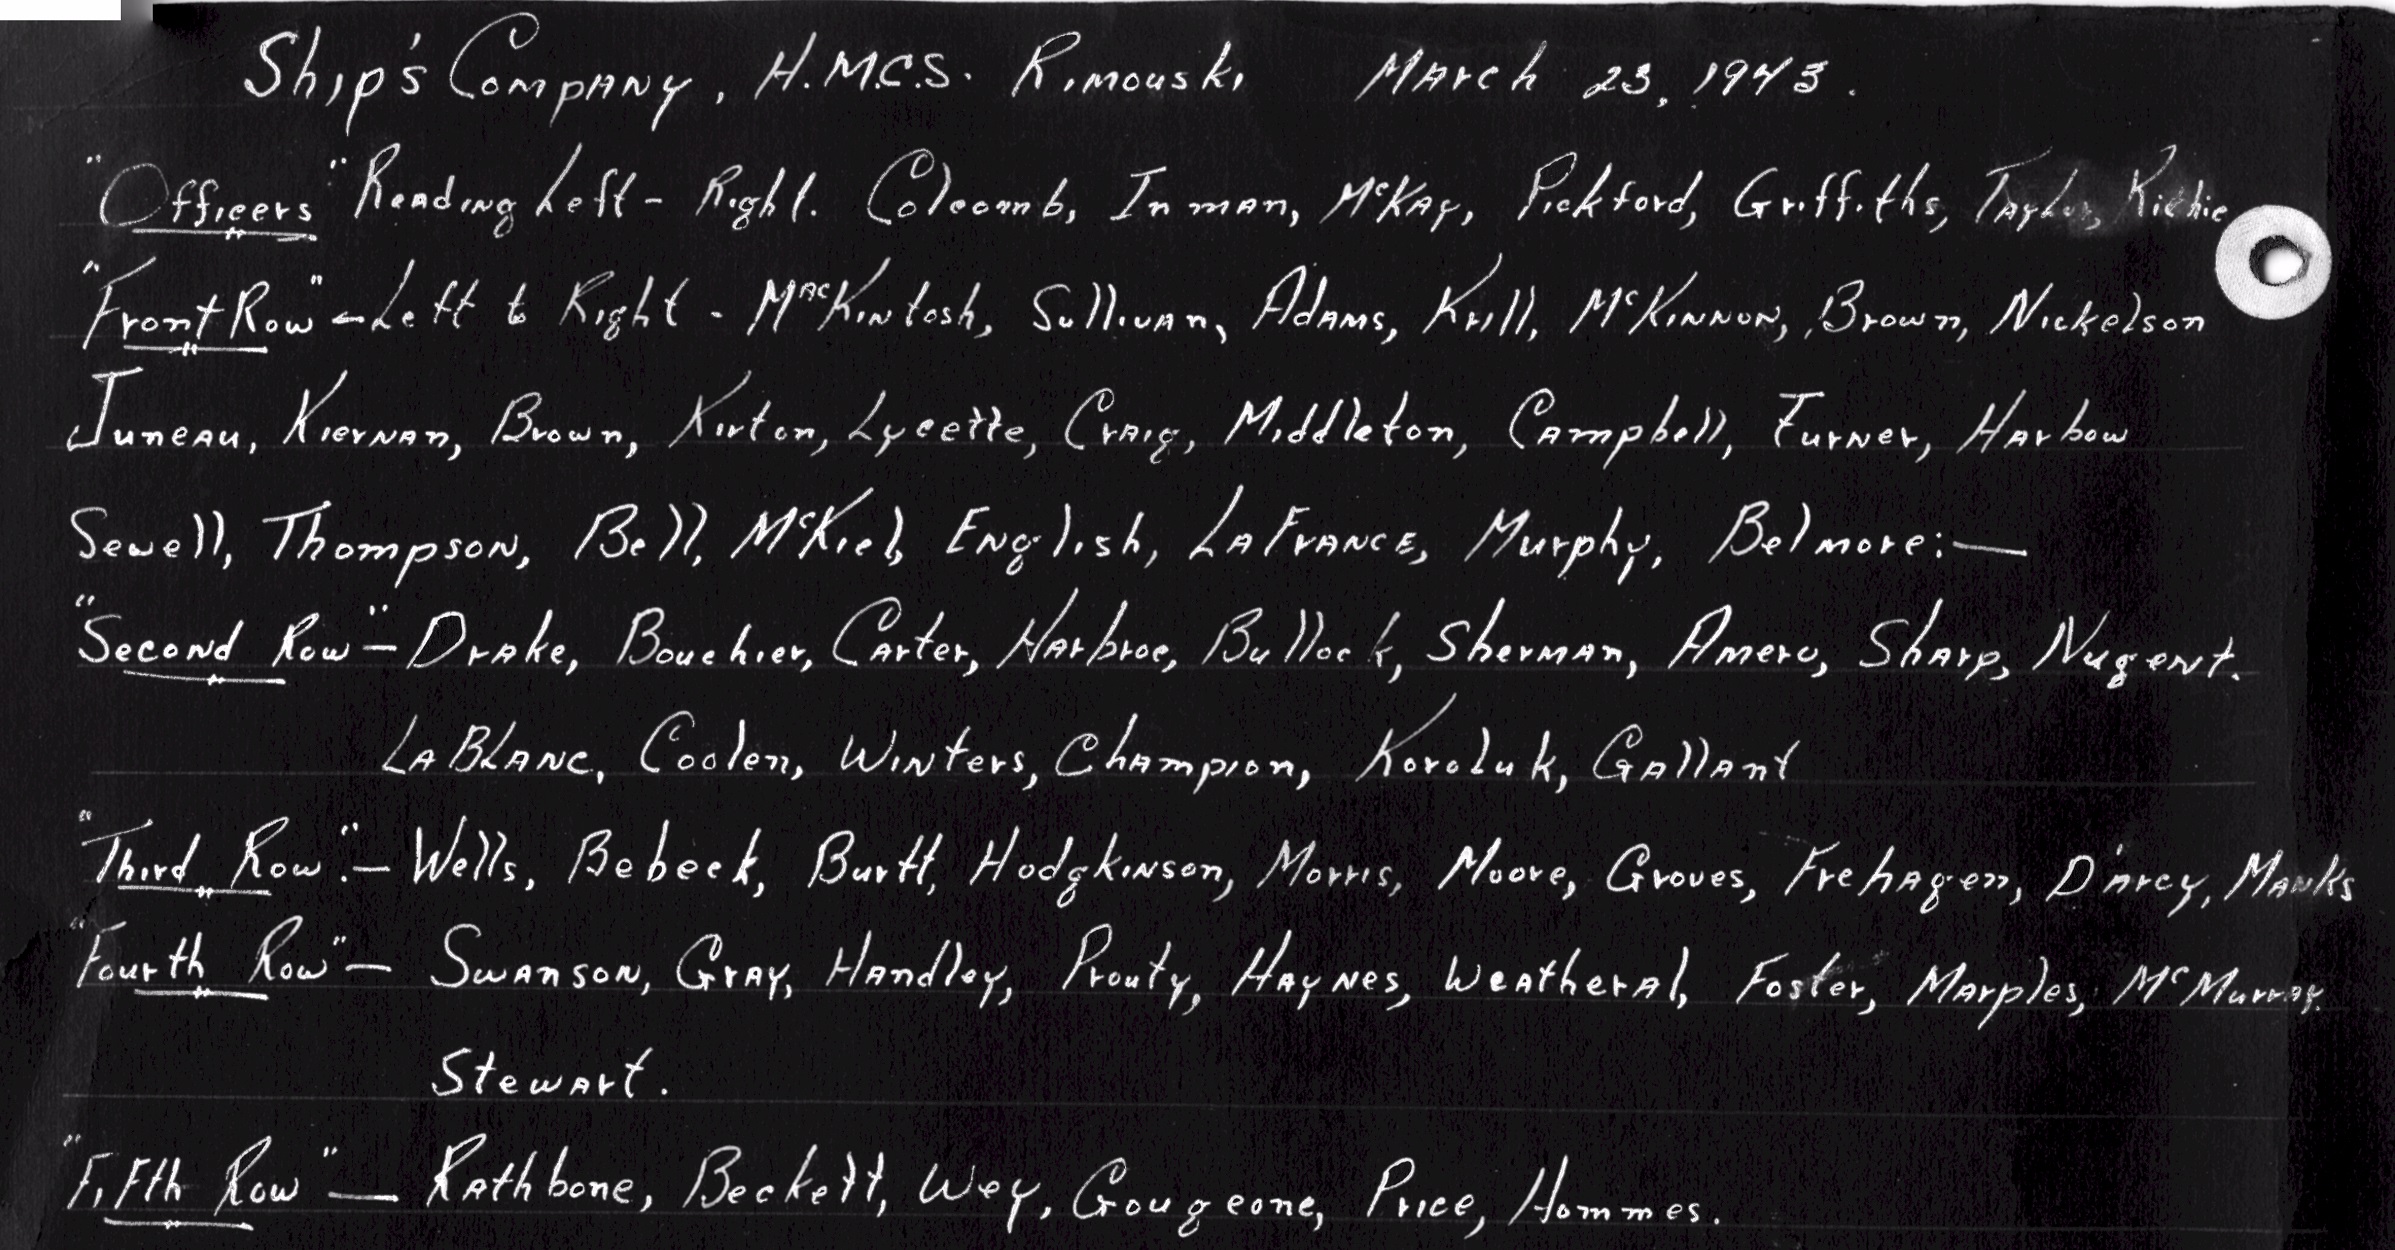 Ship's Company, H.M.C.S. Rimouski March 23, 1943.
"Officers" Reading Left - Right. Colcomb, Inman, McKay, Pickford, Griffiths, Taylor, Richie
"Front Row" - Left to Right - MacKintosh, Sullivan, Adams, Krill, McKinnon, Brown, Nickelson
Juneau, Kiernan, Brown, Kirton, Lycette, Craig, Middleton, Campbell, Turner, Harbow
Sewell, Thompson, Bell, McKiel, English, LaFrance, Murphy, Belmore:—
"Second Row" - Drake, Bouchier, Carter, Harbroe, Bullock, Sherman, Amero, Sharp, Nugent.
LaBlanc, Coolen, Winters, Champion, Koroluk, Gallant
"Third Row": - Wells, Bebeck, Burtt, Hodgkinson, Morris, Moore, Groves, Frehagen, D'arcy, Manks
"Fourth Row" - Swanson, Gray, Handley, Prouty, Haynes, Weatheral, Foster, Marples, McMurray.
Stewart.
"Fifth Row" — Rathbone, Beckett, Wey, Gougeone, Price, Hommes.